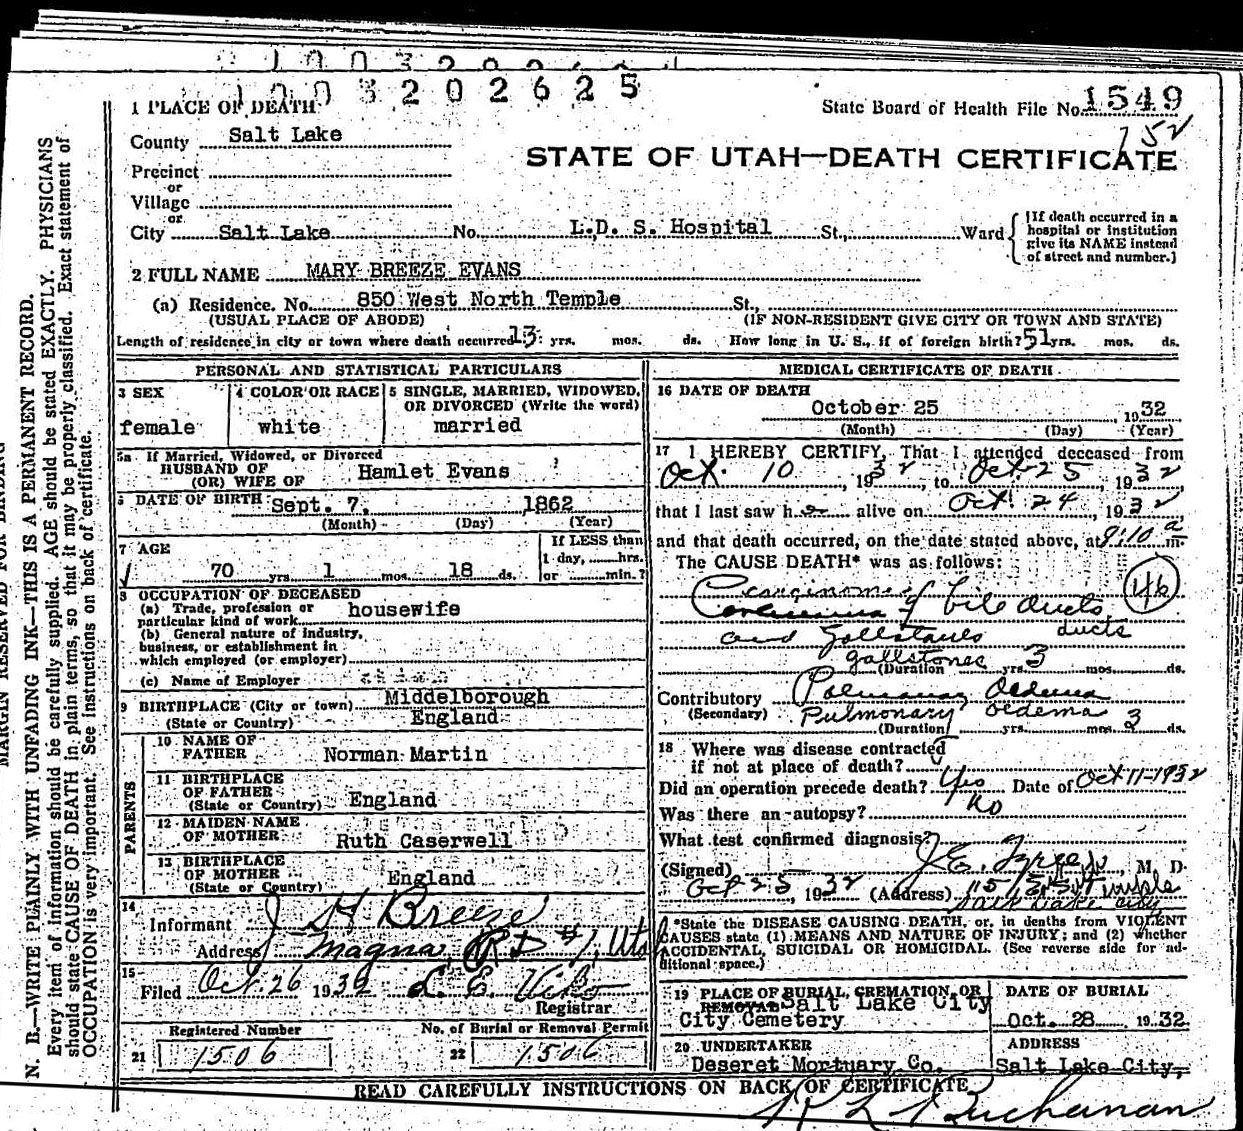 1003202625
1 PLACE OF DEATH State Board of Health File No. 1549
County Salt Lake 752
STATE OF UTAH—DEATH CERTIFICATE
Precinct
or
Village
or
City Salt Lake No. L.D. S. Hospital St., Ward {If death occurred in a hospital or institution give its NAME instead of street and number.]
2 FULL NAME MARY BREEZE EVANS
(a) Residence. No. 850 West North Temple St.,
(USUAL PLACE OF ABODE) (IF NON-RESIDENT GIVE CITY OR TOWN AND STATE)
Length of residence in city or town where death occurred 13 yrs. mos. ds. How long in U. S., if of foreign birth? 51 yrs. mos. ds.
PERSONAL AND STATISTICAL PARTICULARS
3 SEX
female
4 COLOR OR RACE
white
5 SINGLE, MARRIED, WIDOWED,
OR DIVORCED (Write the word)
married
5a If Married, Widowed, or Divorced
HUSBAND OF
(OR) WIFE OF Hamlet Evans
6 DATE OF BIRTH Sept. 7, 1862
(Month) (Day) (Year)
7 AGE
70 yrs. 1 mos. 18 ds.
If LESS than
1 day, hrs.
or min.?
8 OCCUPATION OF DECEASED
(a) Trade, profession or
particular kind of work housewife
(b) General nature of industry,
business, or establishment in
which employed (or employer)
(c) Name of Employer
9 BIRTHPLACE (City or town) Middelborough
(State or Country) England
PARENTS
10 NAME OF
FATHER Norman Martin
11 BIRTHPLACE
OF FATHER
(State or Country) England
12 MAIDEN NAME
OF MOTHER Ruth Caserwell
13 BIRTHPLACE
OF MOTHER
(State or Country) England
14
Informant J H Breeze
Address Magna, R D #1, Utah
15
Filed Oct. 26 1932 L. E. Viko
Registrar
Registered Number
21 1506
No. of Burial or Removal Permit
22 1506
MEDICAL CERTIFICATE OF DEATH
16 DATE OF DEATH
October 25 1932
(Month) (Day) (Year)
17 I HEREBY CERTIFY, That I attended deceased from
Oct. 10, 1932, to Oct. 25, 1932,
that I last saw her alive on Oct. 24, 1932,
and that death occurred, on the date stated above, at 9:10 a m.
The CAUSE DEATH* was as follows:
Carcinoma of bile ducts 46
and Gallstones ducts
gallstones
(Duration yrs. 3 mos. ds.
Contributory Pulmonary Oedema
(Secondary) Pulmonary oedema
(Duration yrs. mos. 3 ds.
18 Where was disease contracted
if not at place of death?
Did an operation precede death? Yes Date of Oct 11-1932
Was there an autopsy? No
What test confirmed diagnosis?
(Signed) J. E. , M D
Oct 25, 1932 (Address) Temple
Salt Lake City
*State the DISEASE CAUSING DEATH, or, in deaths from VIOLENT
CAUSES state (1) MEANS AND NATURE OF INJURY; and (2) whether
ACCIDENTAL, SUICIDAL OR HOMICIDAL. (See reverse side for ad-
ditional space.)
19 PLACE OF BURIAL, CREMATION, OR
REMOVAL Salt Lake City
City Cemetery
DATE OF BURIAL
Oct. 28 1932
20 UNDERTAKER
Deseret Mortuary Co.
ADDRESS
Salt Lake City,
READ CAREFULLY INSTRUCTIONS ON BACK OF CERTIFICATE
Buchanan
MARGIN RESERVED FOR BINDING
N. B.—WRITE PLAINLY WITH UNFADING INK—THIS IS A PERMANENT RECORD.
Every item of information should be carefully supplied. AGE should be stated EXACTLY. PHYSICIANS
should state CAUSE OF DEATH in plain terms, so that it may be properly classified. Exact statement of
OCCUPATION is very important. See instructions on back of certificate.